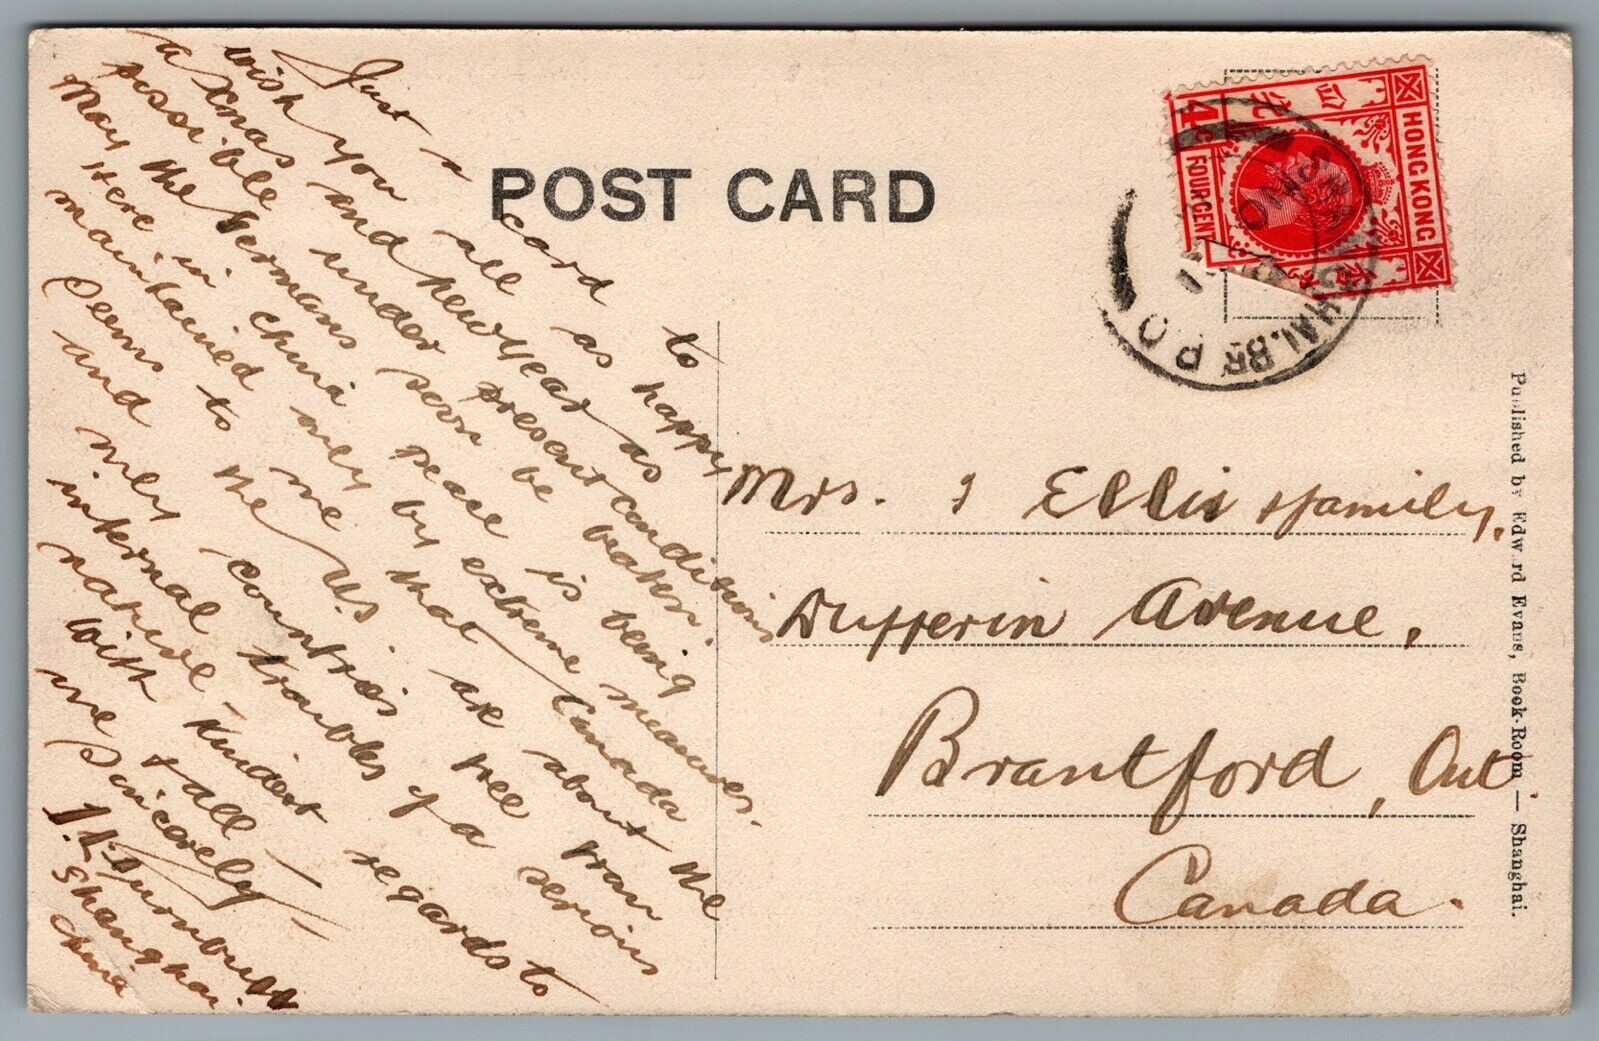 Just a card to
wish you all as happy
a Xmas and New Year as
possible under present conditions
May the Germans soon be beaten.
Here in China peace is being
maintained only by extreme measures.
Seems to me that Canada
and the U.S. are about the
only countries free from
internal troubles of a serious
nature –
With kindest regards to
one & all –
Sincerely –
Turnbull
Shanghai
China
POST CARD
HONG KONG
4 C
FOUR CENT
SHANGHAI BR. P.O.
Mrs. J Ellis & family,
Dufferin Avenue,
Brantford, Ont.
Canada.
Published by Edward Evans, Book-Room — Shanghai.